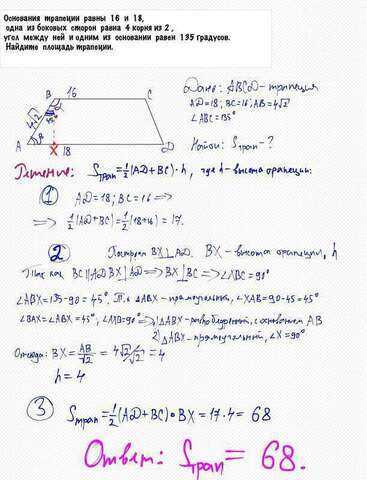 Основания трапеции равны 16 и 18,
одна из боковых сторон равна 4 корня из 2,
угол между ней и одним из оснований равен 135 градусов.
Найдите площадь трапеции.
B 16 C
4√2
A X 18 D
Дано: ABCD - трапеция
AD=18; BC=16; AB=4√2
∠ABC=135°
Найти: Sтрап - ?
Решение: Sтрап = 1/2 (AD+BC)·h, где h - высота трапеции.
① AD=18; BC=16 ⇒
⇒ 1/2 (AD+BC)=1/2 (18+16)=17.
② Построим BX⊥AD. BX - высота трапеции, h
Так как BC||AD BX⊥AD ⇒ BX⊥BC ⇒ ∠XBC=90°
∠ABX=135-90=45°. Т.к. ΔABX - прямоугольный, ∠XAB=90-45=45°
∠BAX=∠ABX=45°, ∠AXB=90° ⇒ 1) ΔABX - равнобедренный, с основанием AB
2) ΔABX - прямоугольный, ∠X=90°
Отсюда: BX = AB/√2 = 4√2/√2 = 4
h=4
③ Sтрап = 1/2 (AD+BC)·BX = 17·4 = 68
Ответ: Sтрап = 68.